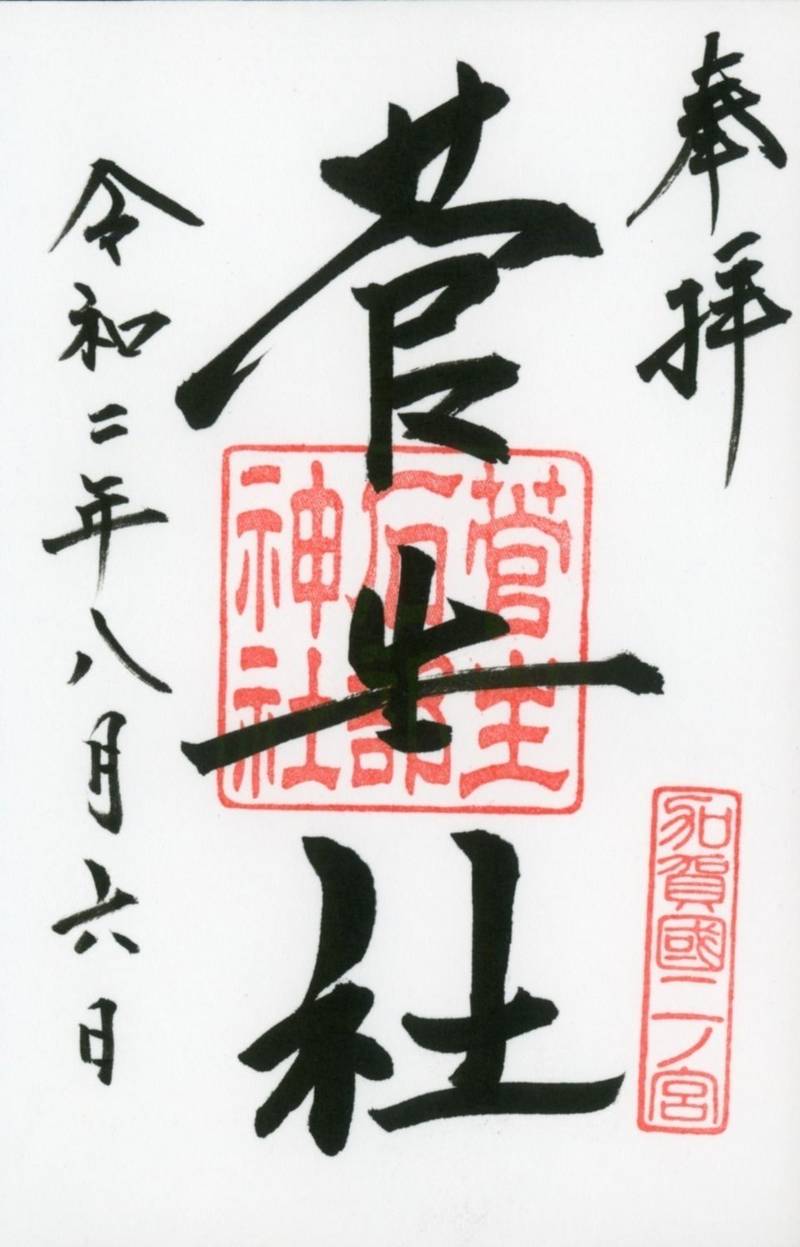 奉拝
加賀國二ノ宮
菅生社
菅生
石部
神社
令和二年八月六日